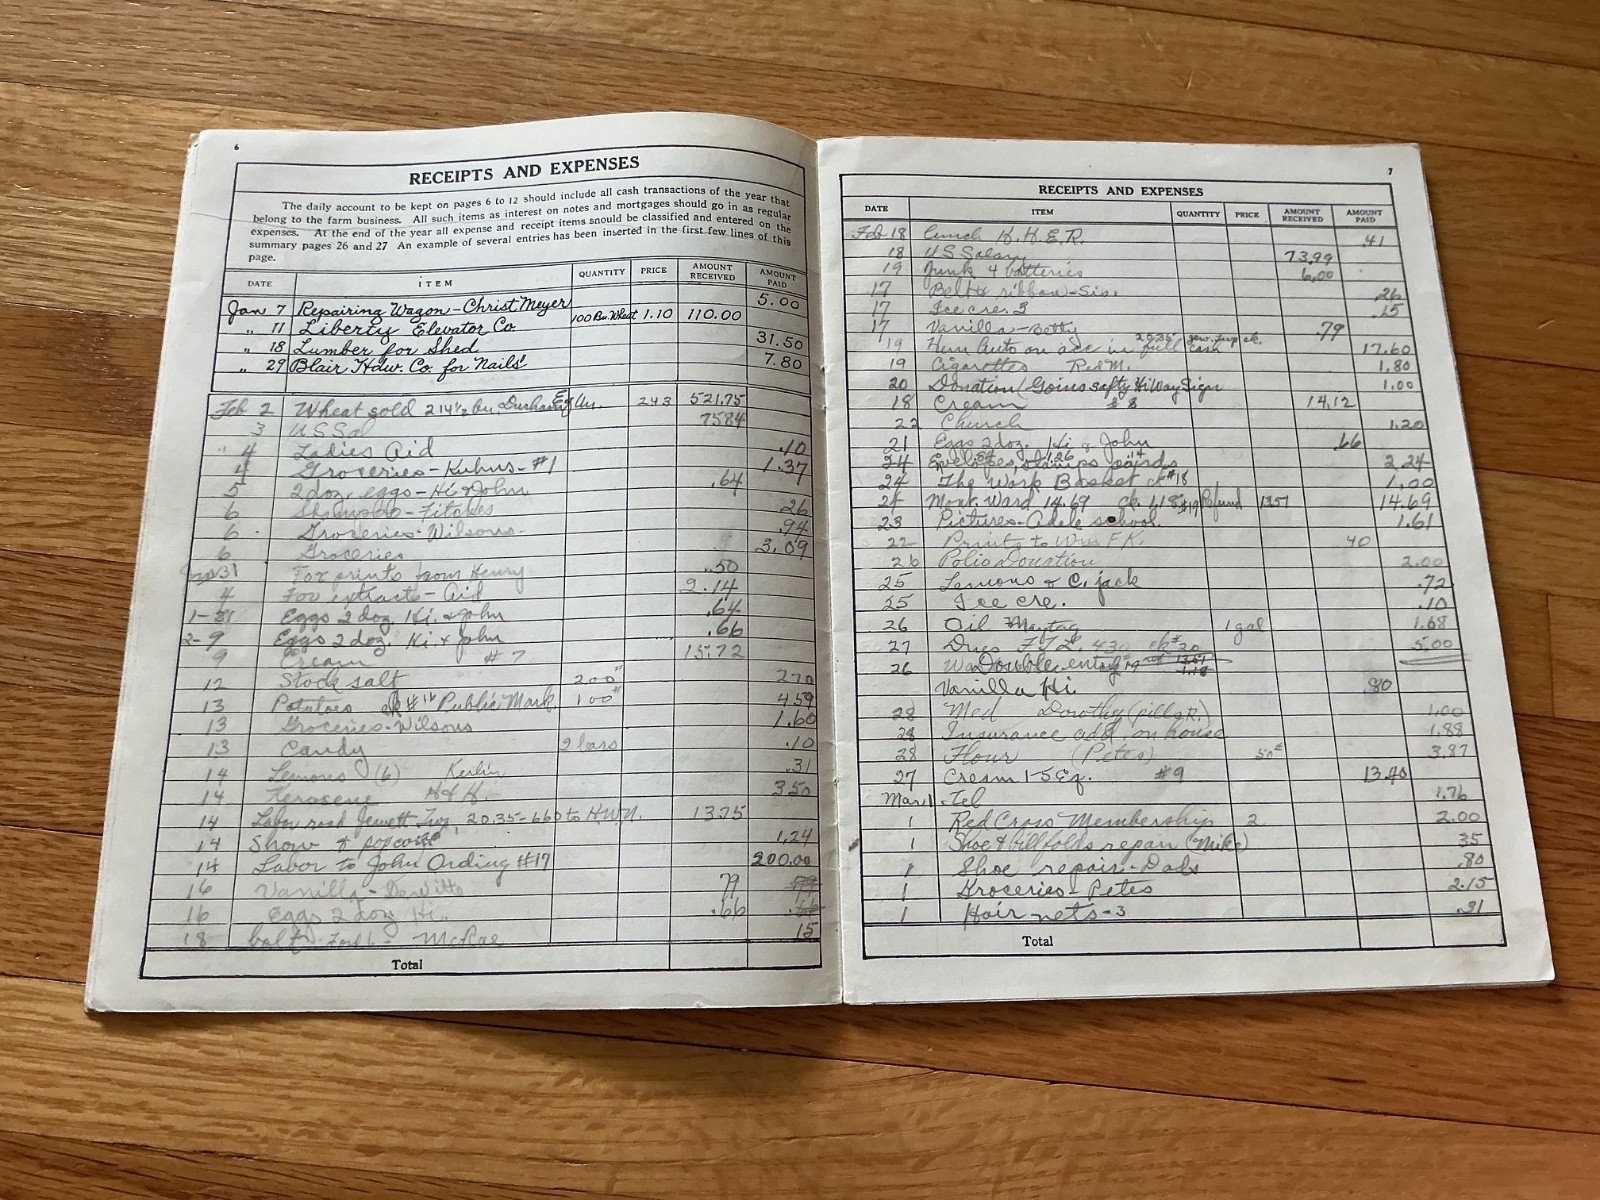 6
RECEIPTS AND EXPENSES
The daily account to be kept on pages 6 to 12 should include all cash transactions of the year that
belong to the farm business. All such items as interest on notes and mortgages should go in as regular
expenses. At the end of the year all expense and receipt items should be classified and entered on the
summary pages 26 and 27 An example of several entries has been inserted in the first few lines of this
page.
DATE ITEM QUANTITY PRICE AMOUNT RECEIVED AMOUNT PAID
Jan 7 Repairing Wagon-Christ Meyer 5.00
" 11 Liberty Elevator Co 100 Bu. Wheat 1.10 110.00
" 18 Lumber for Shed 31.50
" 29 Blair Hdw. Co. for Nails 7.80
Feb 2 Wheat sold 214½ bu. 243 521.75
3 U S Sal 7584
4 Ladies Aid .10
4 Groceries-Kuhns-#1 1.37
5 2 doz. eggs-Hi & John .64
6 26
6 Groceries-Wilsons- .94
6 Groceries 3.09
31 For prints from Henry .50
4 For extracts-Aid 2.14
1-31 Eggs 2 doz. Hi. & John .64
2-9 Eggs 2 doz. Hi & John .66
9 Cream #7 15.72
12 Stock salt 200# 270
13 Potatoes ck #16 Public Mark 100# 4.59
13 Groceries-Wilsons 1.60
13 Candy 2 bars .10
14 Lemons (6) .31
14 Kerosene H & H. 350
14 Labor road Jewett Twp. 20.35-660 to H.W.N. 13.75
14 Show & popcorn 1.24
14 Labor to John Ording #17 200.00
16 Vanilla-DeWitte 79
16 Eggs 2 doz Hi. .66
18 McRae 15
Total
7
RECEIPTS AND EXPENSES
DATE ITEM QUANTITY PRICE AMOUNT RECEIVED AMOUNT PAID
Feb 18 Lunch H.H.E.R. .41
18 U S Salary 73.99
19 Junk 4 batteries 6.00
17 Belt & ribbon-Sis. .26
17 Ice cre. 3 .15
17 Vanilla-Betty .79
19 Auto on acc in full 20.35 cash 17.60
19 Cigarettes Red M. 1.80
20 Donation (Goins safty HiWay Sign 1.00
18 Cream #8 14.12
22 Church 1.20
21 Eggs 2 doz. Hi & John .66
24 Envelopes, stamps cards 2.24
24 The Work Basket ck #18 1.00
24 Mont. Ward 14.69 #19 Refund 1357 14.69
23 Pictures-Adele school. 1.61
22 Prints to Wm F.K. 40
26 Polio Donation 2.00
25 Lemons & C. jack .72
25 Ice cre. .10
26 Oil Maytag 1 gal 1.68
27 Dues 430 ck #20 5.00
26 Double entry
Vanilla Hi. .80
28 Med Dorothy (pills R.) 1.00
28 Insurance add. on house 1.88
28 Flour (Petes) 50# 3.87
27 Cream 1-5 Eq. #9 13.40
Mar 1 Tel 1.76
1 Red Cross Membership 2 2.00
1 Shoe & billfolds repair (Mike) 35
1 Shoe repair-Dads .80
1 Groceries-Petes 2.15
1 Hair nets-3 .31
Total